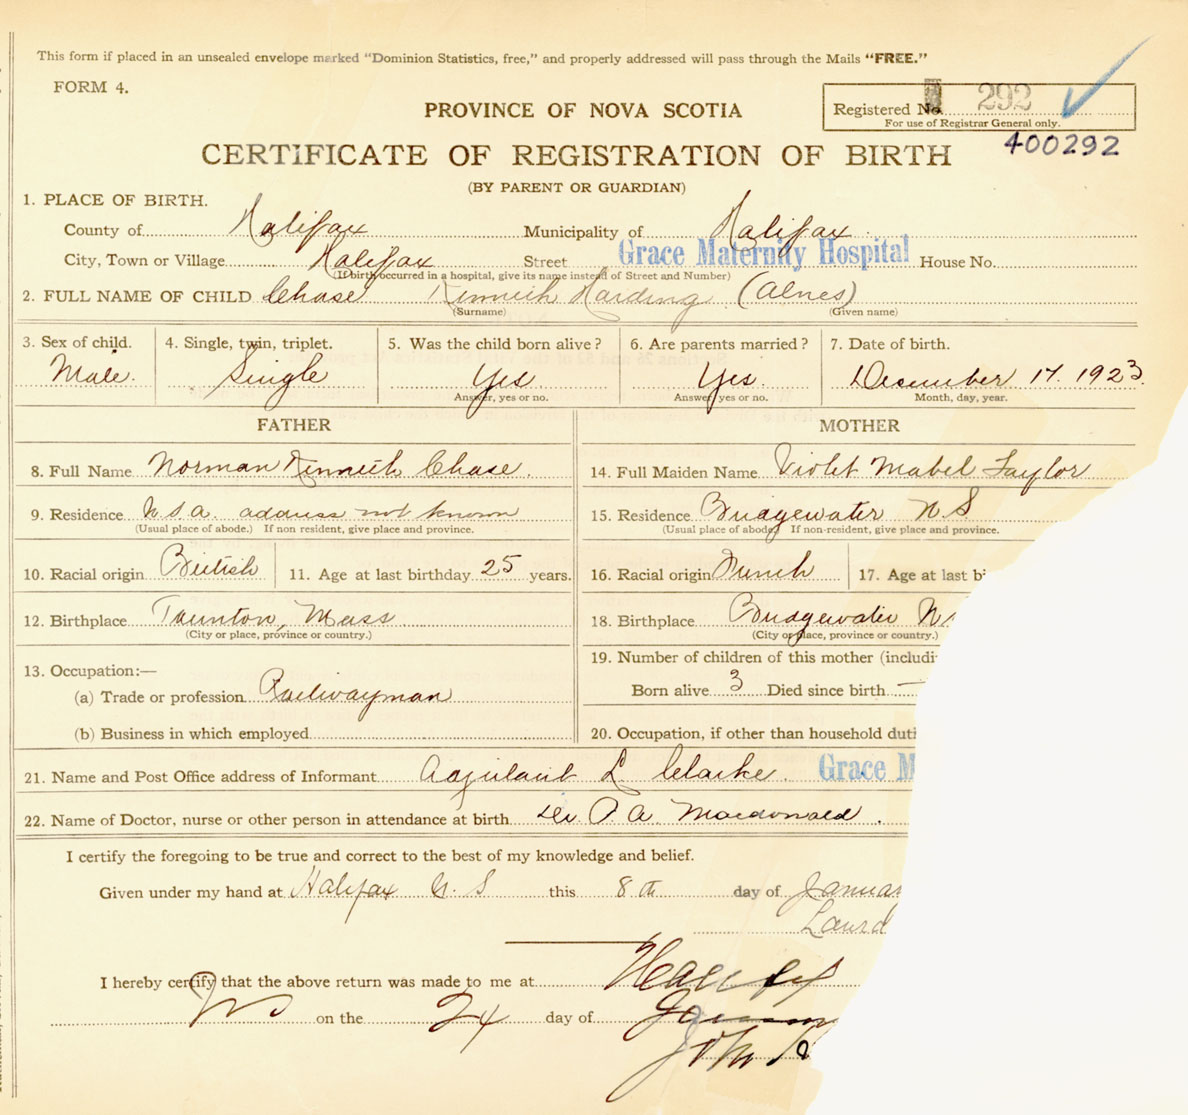 This form if placed in an unsealed envelope marked "Dominion Statistics, free," and properly addressed will pass through the Mails "FREE."
FORM 4.
Registered No. 292
For use of Registrar General only.
PROVINCE OF NOVA SCOTIA
400292
CERTIFICATE OF REGISTRATION OF BIRTH
(BY PARENT OR GUARDIAN)
1. PLACE OF BIRTH.
County of Halifax Municipality of Halifax
City, Town or Village Halifax Street Grace Maternity Hospital House No.
(If birth occurred in a hospital, give its name instead of Street and Number)
2. FULL NAME OF CHILD Chase Kenneth Harding
(Surname) (Given name)
3. Sex of child. 4. Single, twin, triplet. 5. Was the child born alive? 6. Are parents married? 7. Date of birth.
Male. Single Yes Yes. December 17. 1923.
Answer, yes or no. Answer, yes or no. Month, day, year.
FATHER MOTHER
8. Full Name Norman Kenneth Chase. 14. Full Maiden Name Violet Mabel Taylor
9. Residence address not known 15. Residence Bridgewater N.S
(Usual place of abode.) If non resident, give place and province. (Usual place of abode) If non-resident, give place and province.
10. Racial origin British 11. Age at last birthday 25 years. 16. Racial origin French 17. Age at last bi
12. Birthplace Taunton, Mass 18. Birthplace Bridgewater N
(City or place, province or country.) (City or place, province or country.)
13. Occupation:— 19. Number of children of this mother (includi
(a) Trade or profession Railwayman Born alive 3 Died since birth —
(b) Business in which employed 20. Occupation, if other than household duti
21. Name and Post Office address of Informant Adjutant L Clarke. Grace M
22. Name of Doctor, nurse or other person in attendance at birth Dr. P A. Macdonald.
I certify the foregoing to be true and correct to the best of my knowledge and belief.
Given under my hand at Halifax N. S this 8th day of Januar
Laura
I hereby certify that the above return was made to me at
on the 24 day of
John